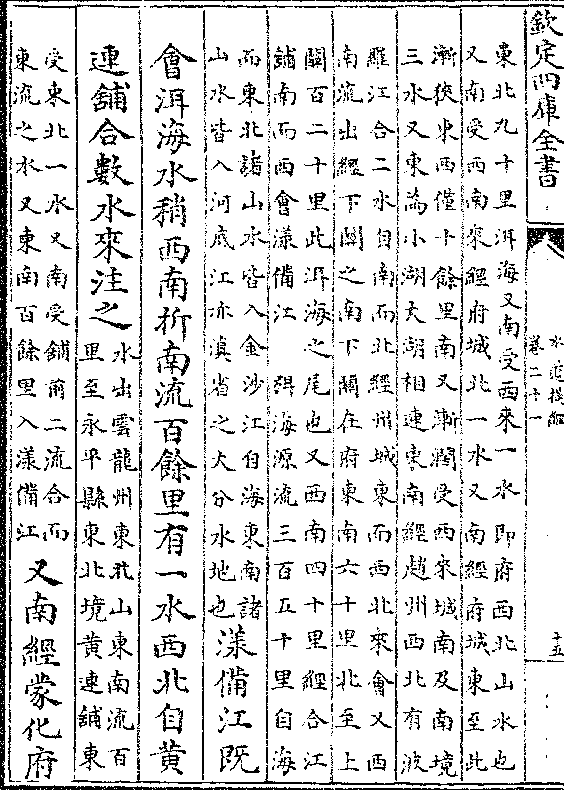 欽定四庫全書
水道提綱
卷二十一
十五
東北九十里洱海又南受西來一水即府西北山水也
又南受西南來經府城北一水又南經府城東至此
漸狹東西僅十餘里南又漸濶受西來城南及南境
三水又東為小湖大湖相連東南經趙州西北有波
羅江合二水自南而北經州城東而西北來會又西
南流出經下關之南下關在府東南六十里北至上
關百二十里此洱海之尾也又西南四十里經合江
舖南而西會漾備江 洱海源流三百五十里自海
而東北諸山水皆入金沙江自海東南諸
山水皆入河底江亦滇省之大分水地也
漾備江既
會洱海水稍西南折南流百餘里有一水西北自黃
連舖合數水來注之
水出雲龍州東山東南流百
里至永平縣東北境黃連舖東
受東北一水又南受舖前二流合而
東流之水又東南百餘里入漾備江
又南經蒙化府